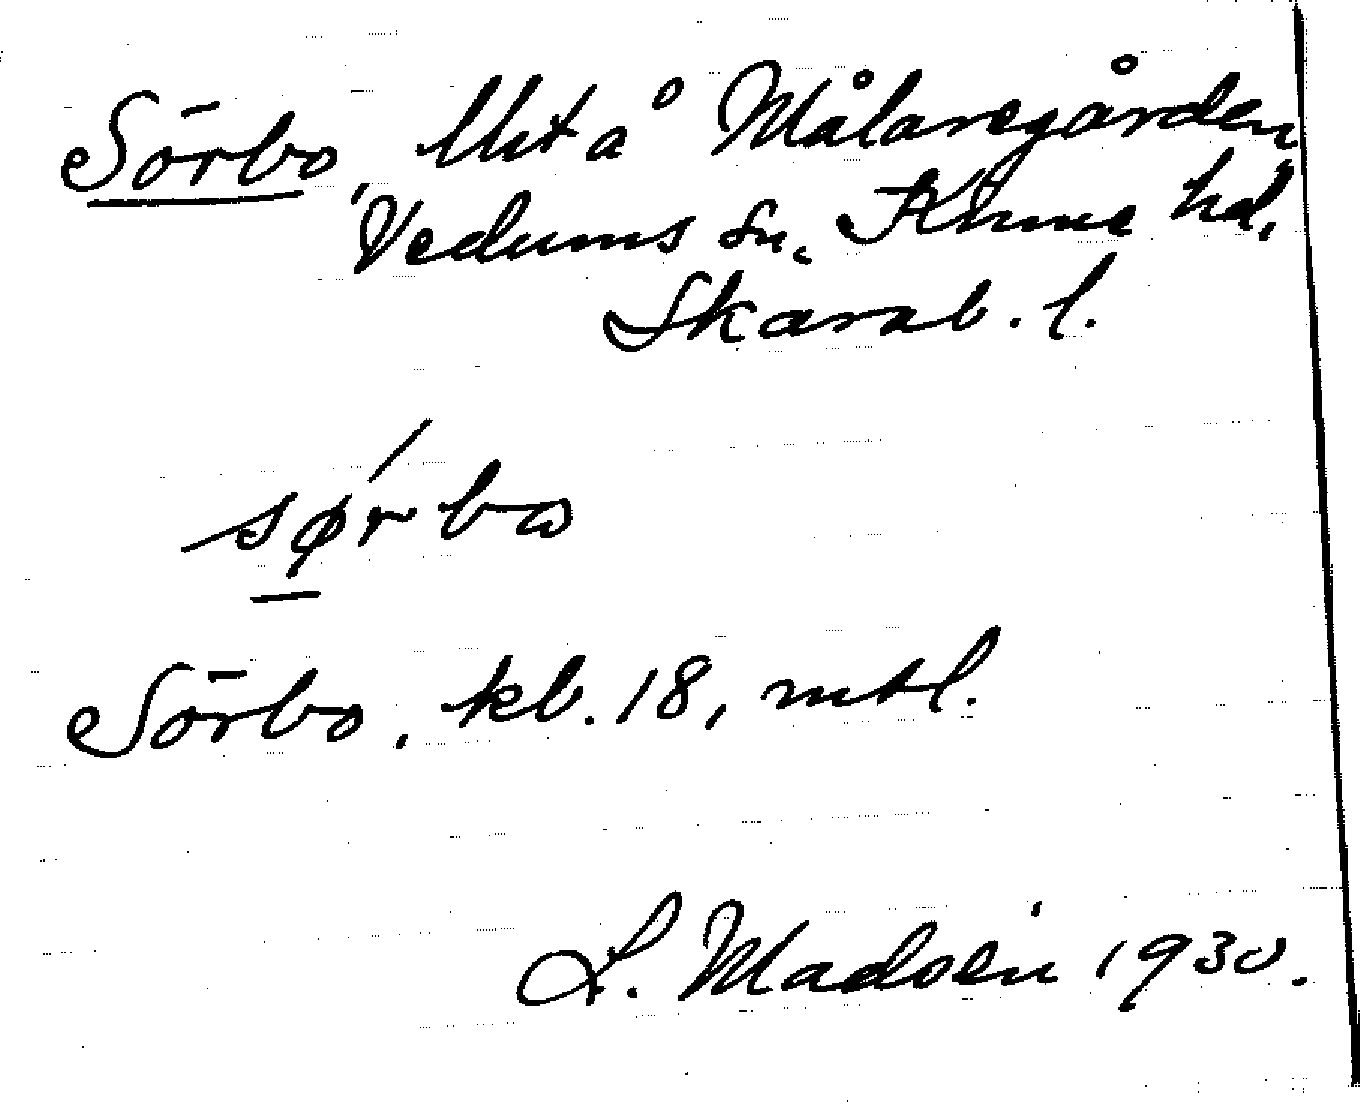 Sörbo, Utå Målaregården
Vedums sn. Kinne hd.
Skarab. l.
sørbo
Sörbo, kb. 18, mtl.
L. Madsén 1930.